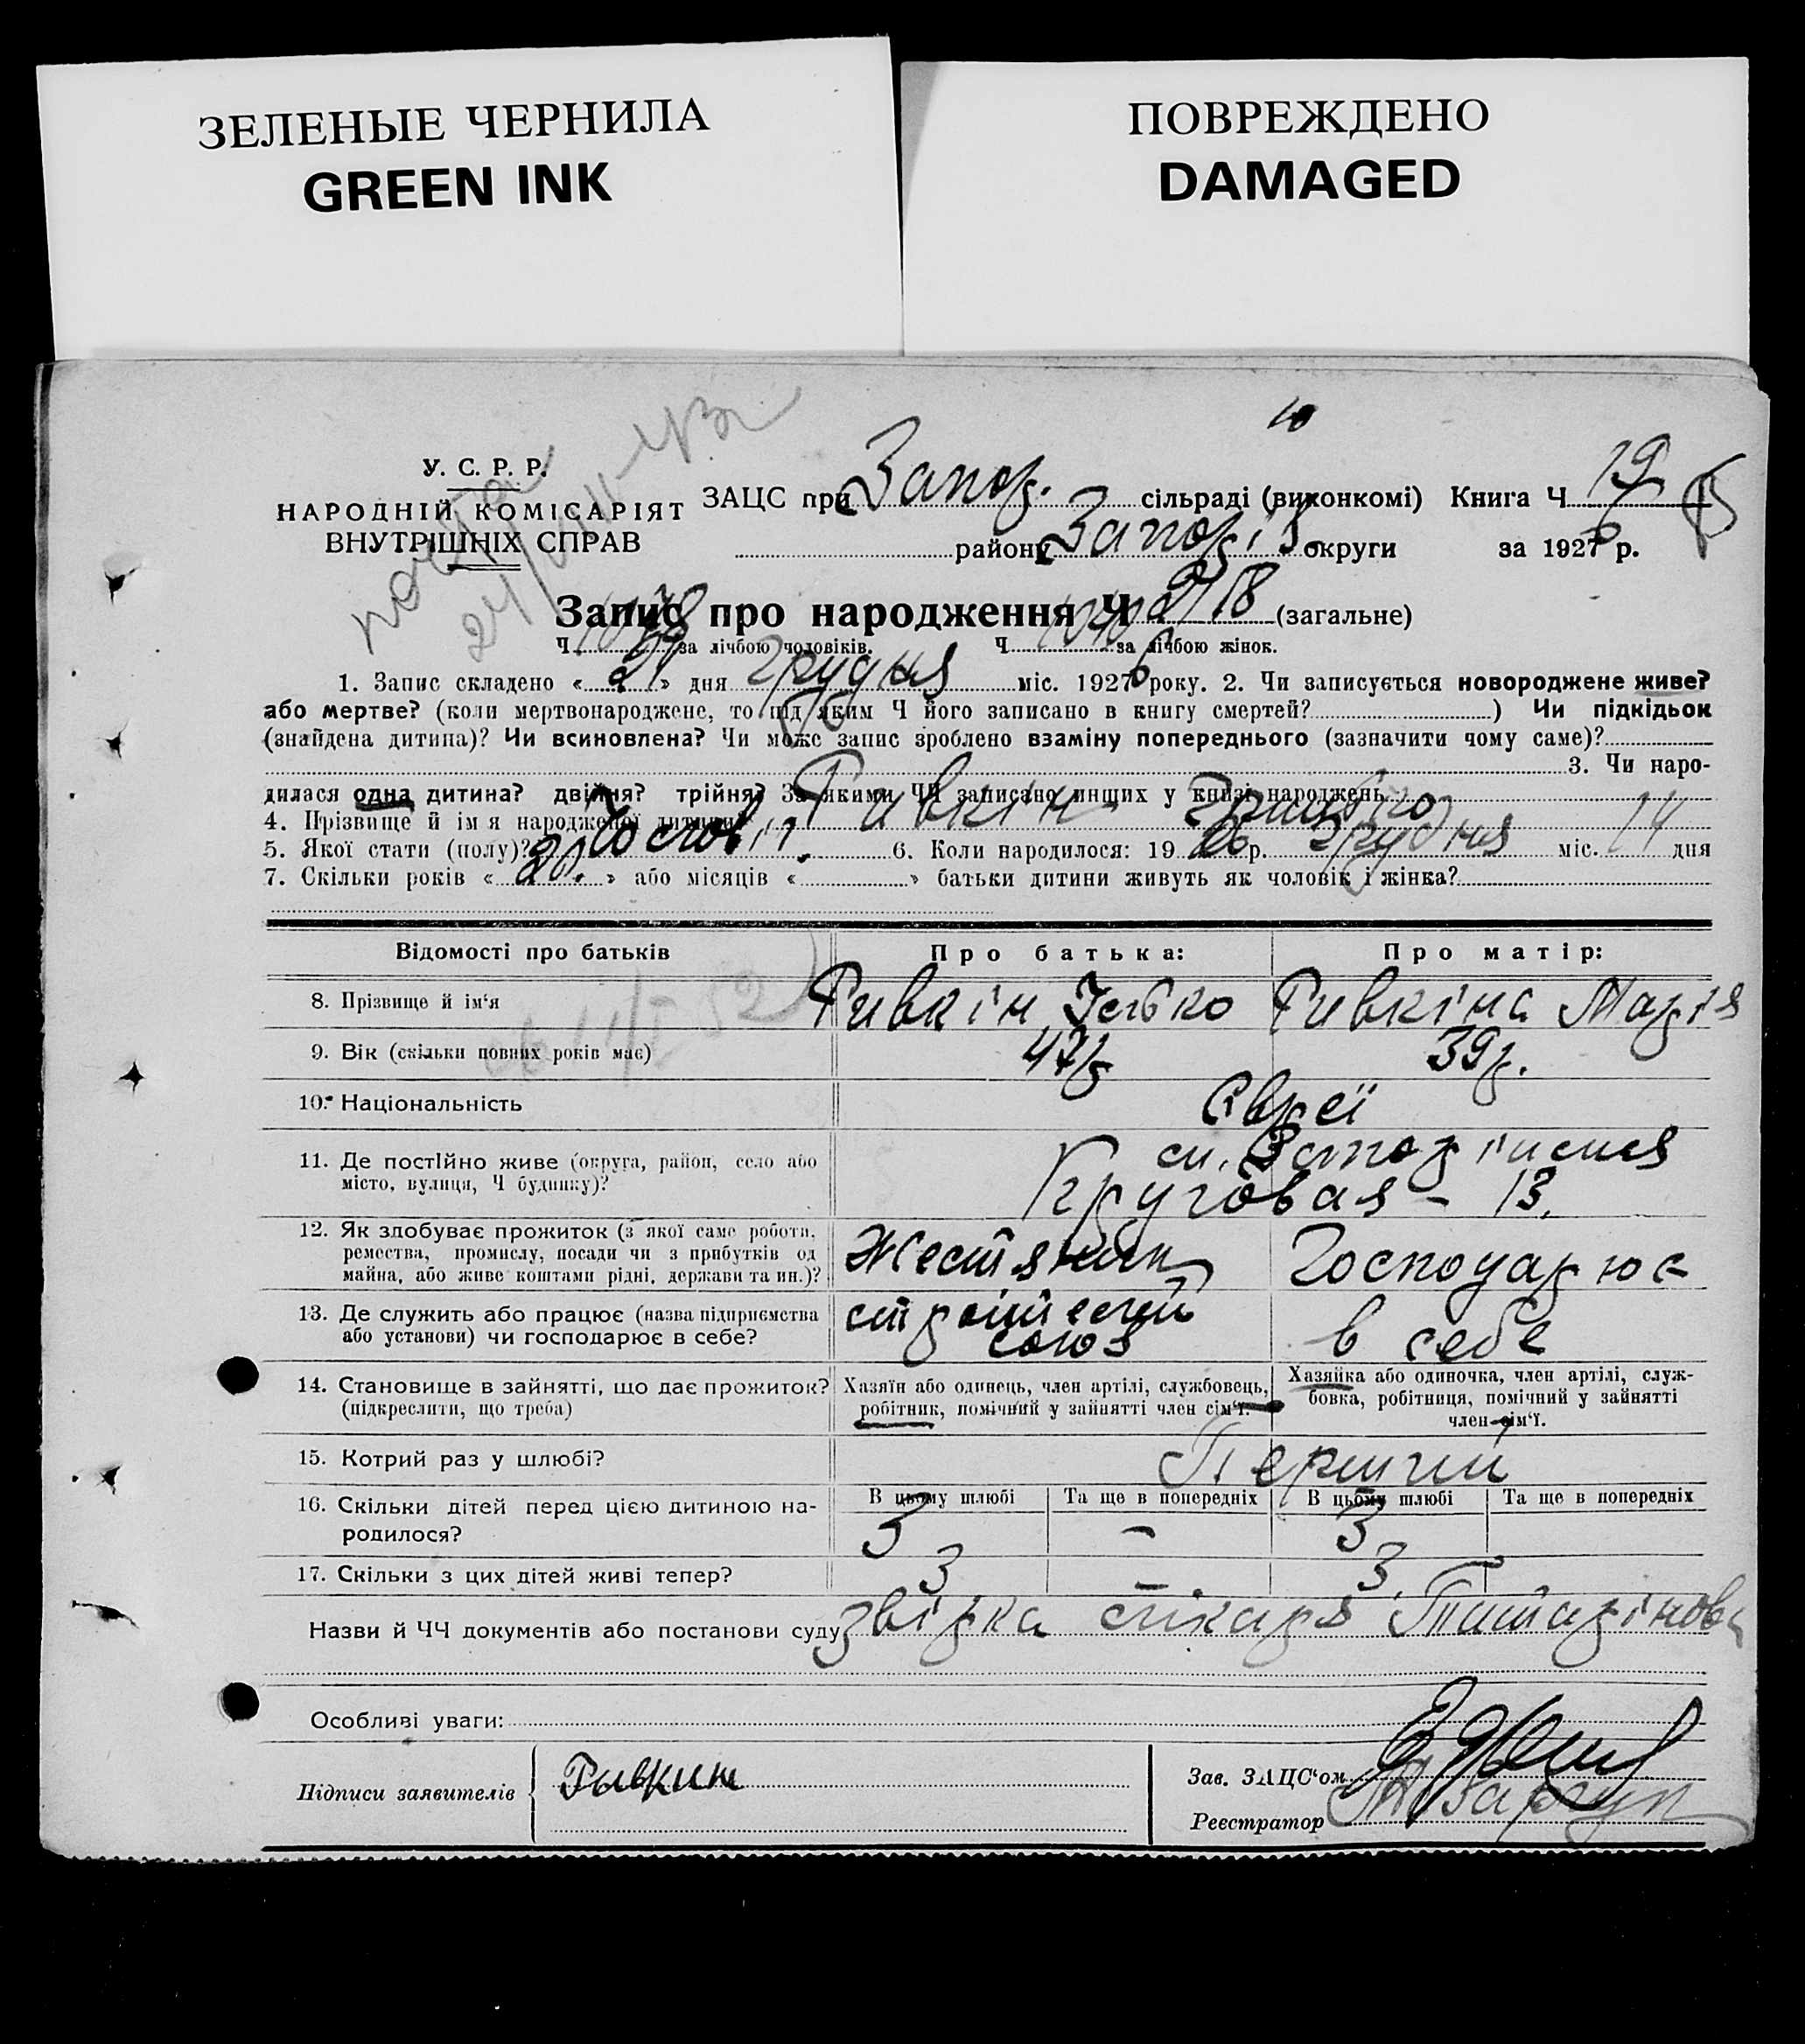 ЗЕЛЕНЫЕ ЧЕРНИЛА
GREEN INK
ПОВРЕЖДЕНО
DAMAGED
У. С. Р. Р.
НАРОДНІЙ КОМІСАРІЯТ
ВНУТРІШНІХ СПРАВ
ЗАЦС при Запор. сільраді (виконкомі) Книга Ч 19
району Запоріз. округи за 1926 р.
Запис про народження Ч 2118 (загальне)
Ч 1078 за лічбою чоловіків. Ч 1040 за лічбою жінок.
1. Запис складено « 21 » дня Грудня міс. 1926 року. 2. Чи записується новороджене живе?
або мертве? (коли мертвонароджене, то під яким Ч його записано в книгу смертей? ) Чи підкідьок
(знайдена дитина)? Чи всиновлена? Чи може запис зроблено взаміну попереднього (зазначити чому саме)?
3. Чи наро-
дилася одна дитина? двійня? трійня? За якими ЧЧ записано инших у книзі народжень
4. Прізвище й ім'я народженої дитини Ривкін Грицько
5. Якої стати (полу)? Чолов. 6. Коли народилося: 1926 р. Грудня міс. 14 дня
7. Скільки років « 20. » або місяців « » батьки дитини живуть як чоловік і жінка?
Відомості про батьків Про батька: Про матір:
8. Прізвище й ім'я Ривкін Ісько Ривкіна Марія
9. Вік (скільки повних років має) 47р 39р.
10. Національність Євреї
11. Де постійно живе (округа, район, село або
місто, вулиця, Ч будинку)?
Круговая - 13.
12. Як здобуває прожиток (з якої саме роботи,
ремества, промислу, посади чи з прибутків од
майна, або живе коштами рідні, держави та ин.)?
Жестяник Господарює
13. Де служить або працює (назва підприємства
або установи) чи господарює в себе?
союз в себе
14. Становище в зайнятті, що дає прожиток?
(підкреслити, що треба)
Хазяїн або одинець, член артілі, службовець,
робітник, помічний у зайнятті член сім'ї.
Хазяйка або одиночка, член артілі, служ-
бовка, робітниця, помічний у зайнятті
член сім'ї.
15. Котрий раз у шлюбі? Перший
16. Скільки дітей перед цією дитиною на-
родилося?
В цьому шлюбі Та ще в попередніх В цьому шлюбі Та ще в попередніх
3 - 3
17. Скільки з цих дітей живі тепер? 3 - 3
Назви й ЧЧ документів або постанови суду звірка лікаря
Особливі уваги:
Підписи заявителів Рывкин
Зав. ЗАЦС'ом
Реєстратор